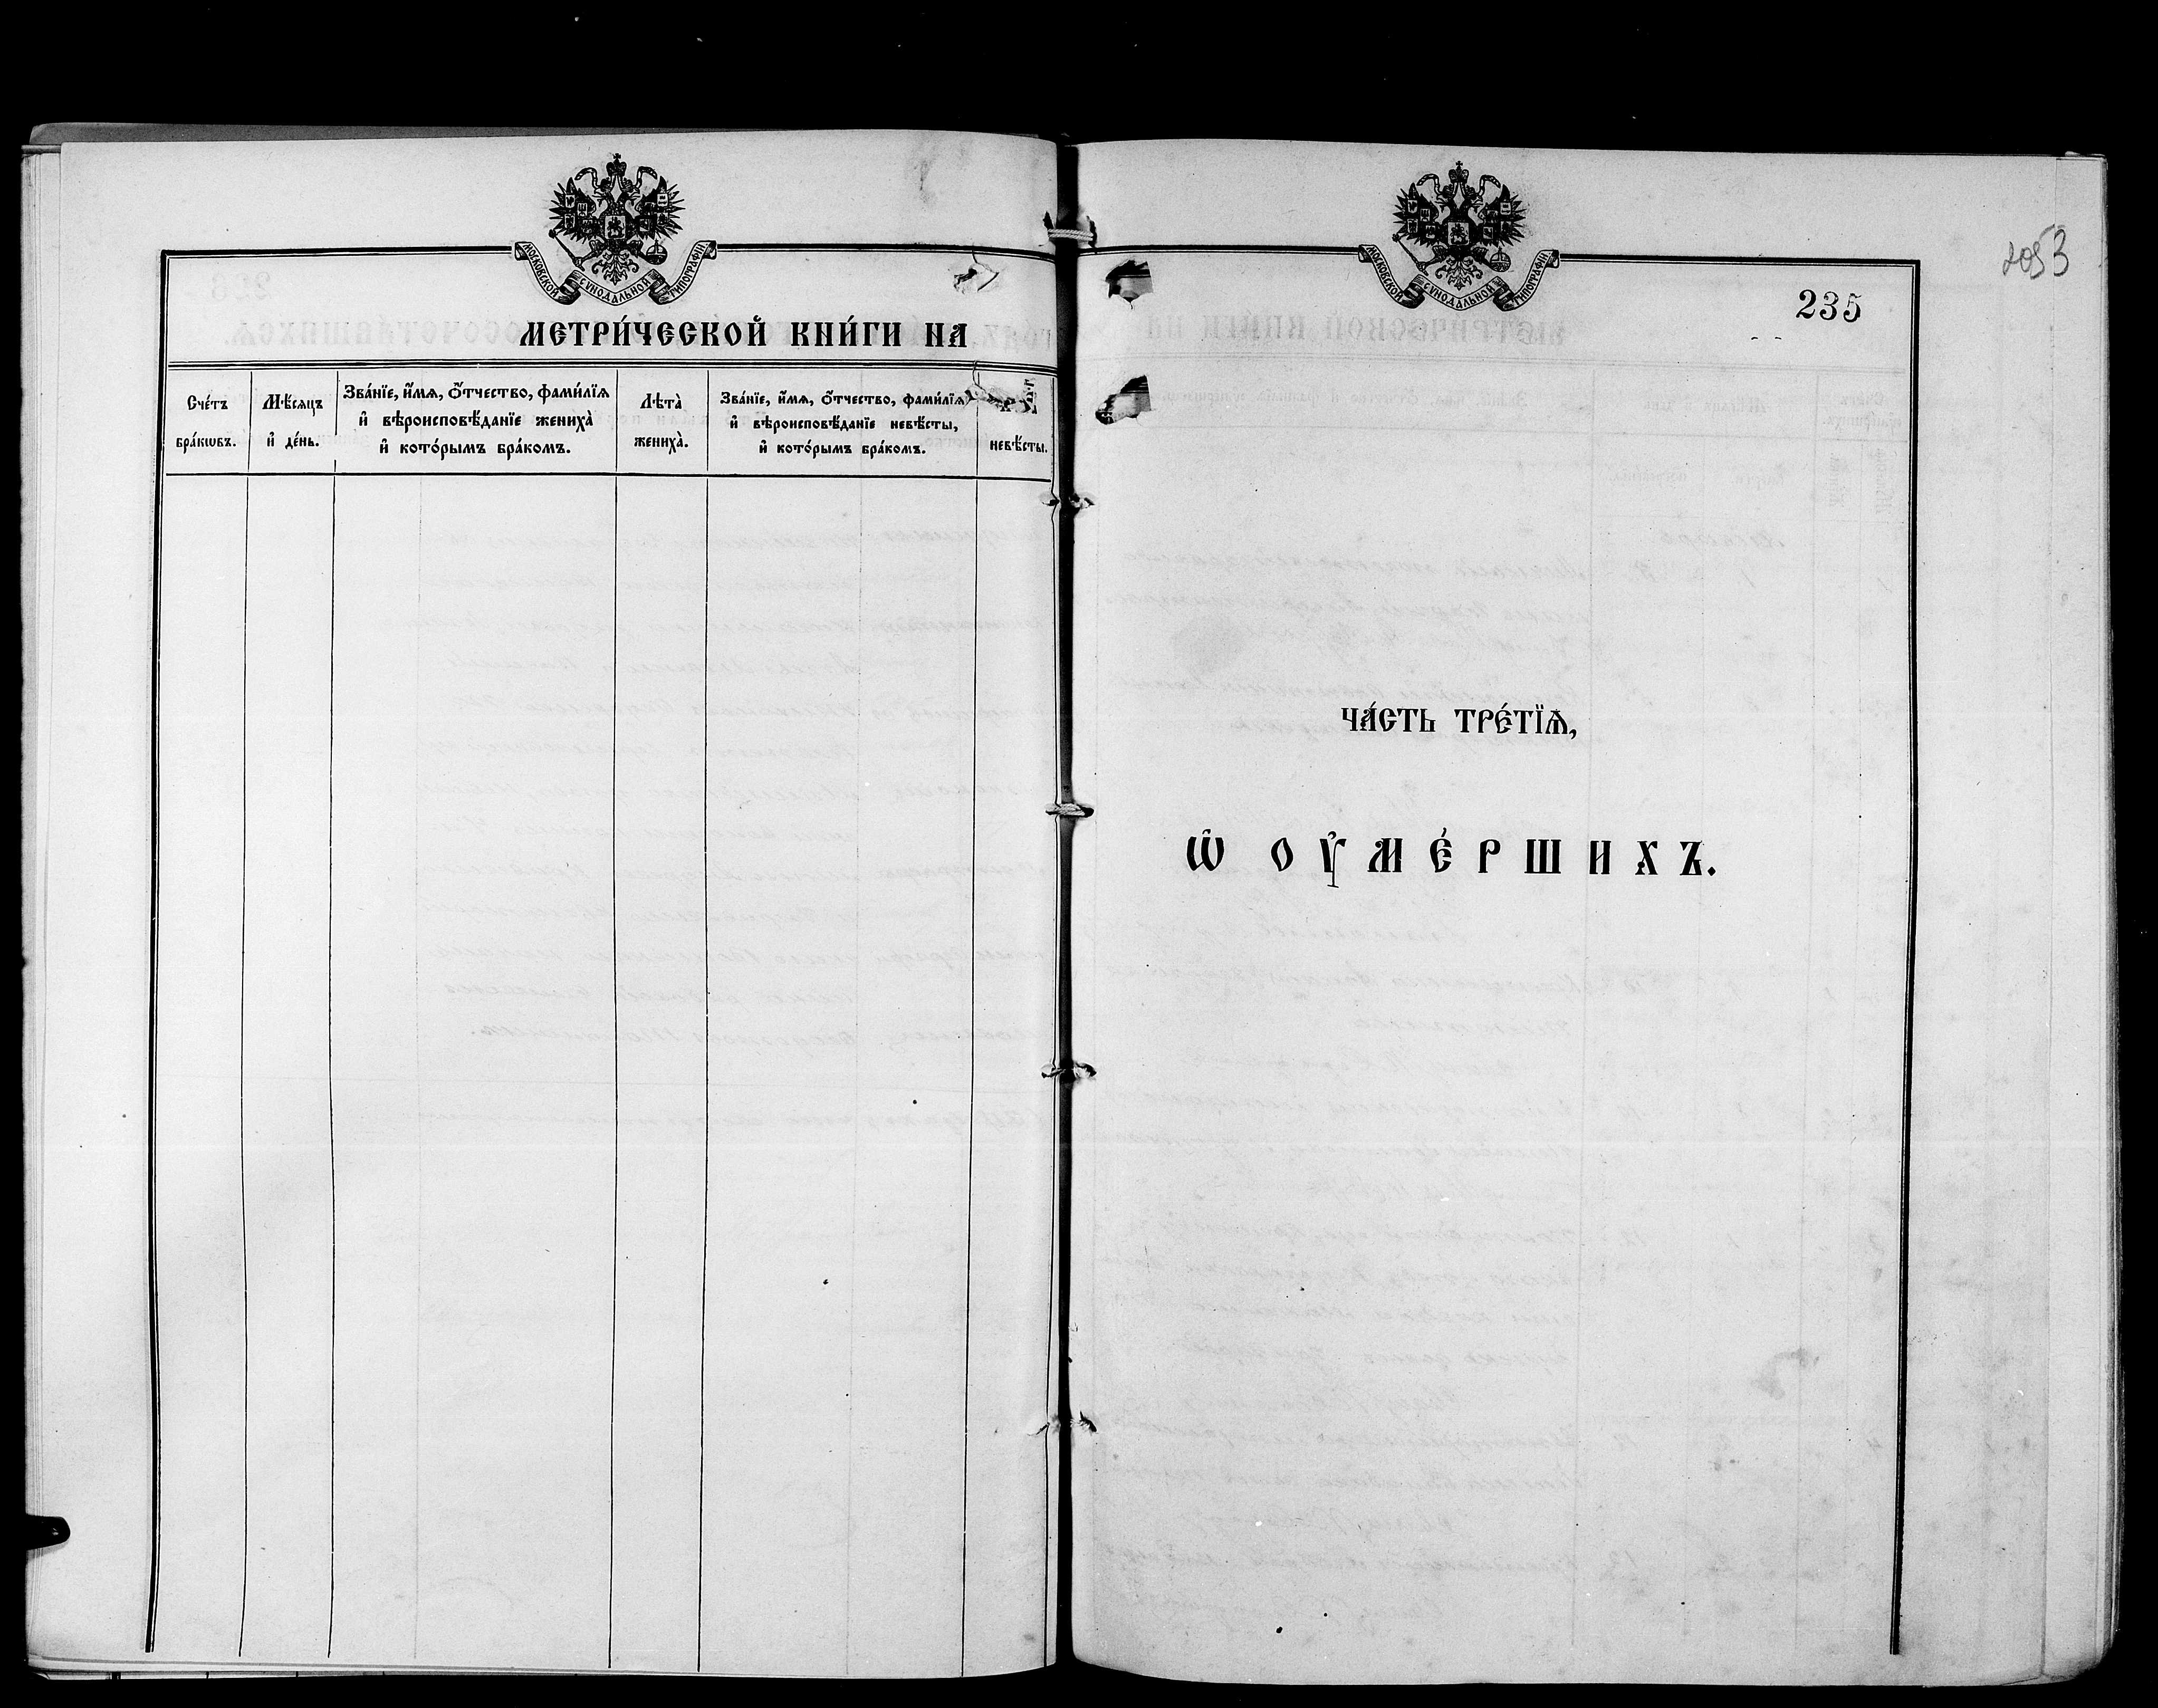 МОСКОВСКОЙ СѴНОДАЛЬНОЙ ТИПОГРАФІИ
МЕТРИ́ЧЕСКОЙ КНИ́ГИ НА
Сче́тъ
бра́кѡвъ.
Мѣ́сяцъ
и҆ де́нь.
Зва́нїе, и҆́мѧ, ѻ҆́тчество, фами́лїѧ
и҆ вѣроисповѣ́данїе жениха̀
и҆ кото́рымъ бра́комъ.
Лѣта̀
жениха̀.
Зва́нїе, и҆́мѧ, ѻ҆́тчество, фами́лїѧ
и҆ вѣроисповѣ́данїе невѣ́сты,
и҆ кото́рымъ бра́комъ.
невѣ́сты.
МОСКОВСКОЙ СѴНОДАЛЬНОЙ ТИПОГРАФІИ
2053
235
ЧА́СТЬ ТРЕ́ТЇѦ,
Ѡ҆ ОУ҆МЕ́РШИХЪ.